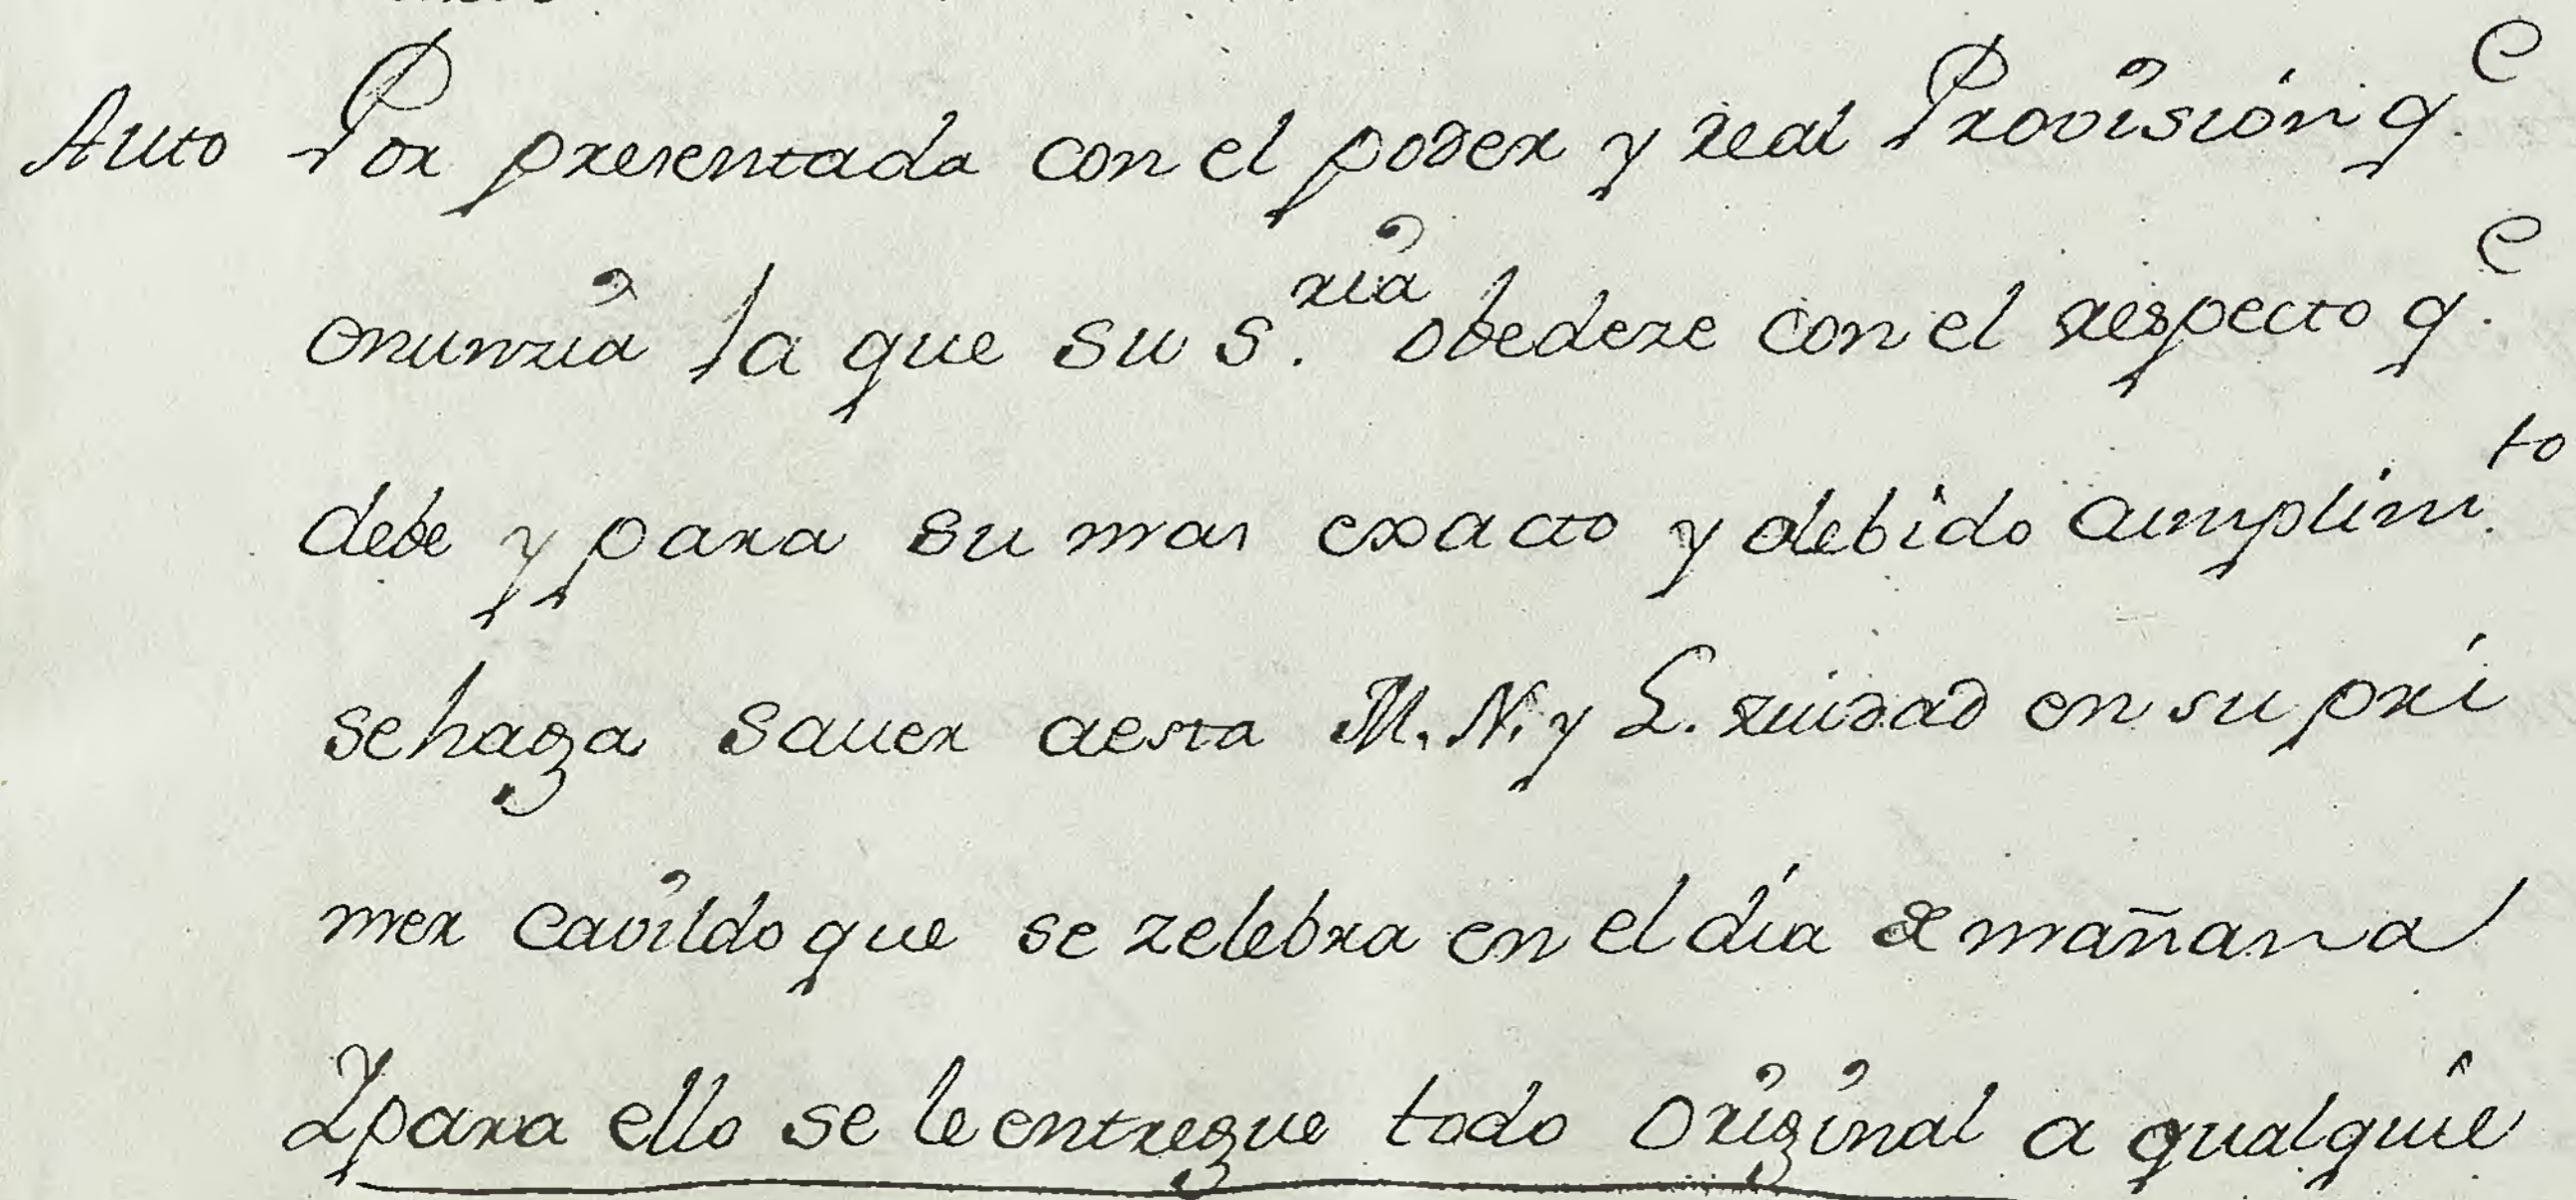 Auto Por presentada con el poder y real Provisión q.e
enunzia la que su s.ria obedeze con el respecto q.e
debe y para su mas exacto y debido cumplim.to
sehaga sauer aesta M. N. y L. ziudad en su pri
mer cavildo que se zelebra en el día de mañana
Ypara ello se le entregue todo original a qualquie